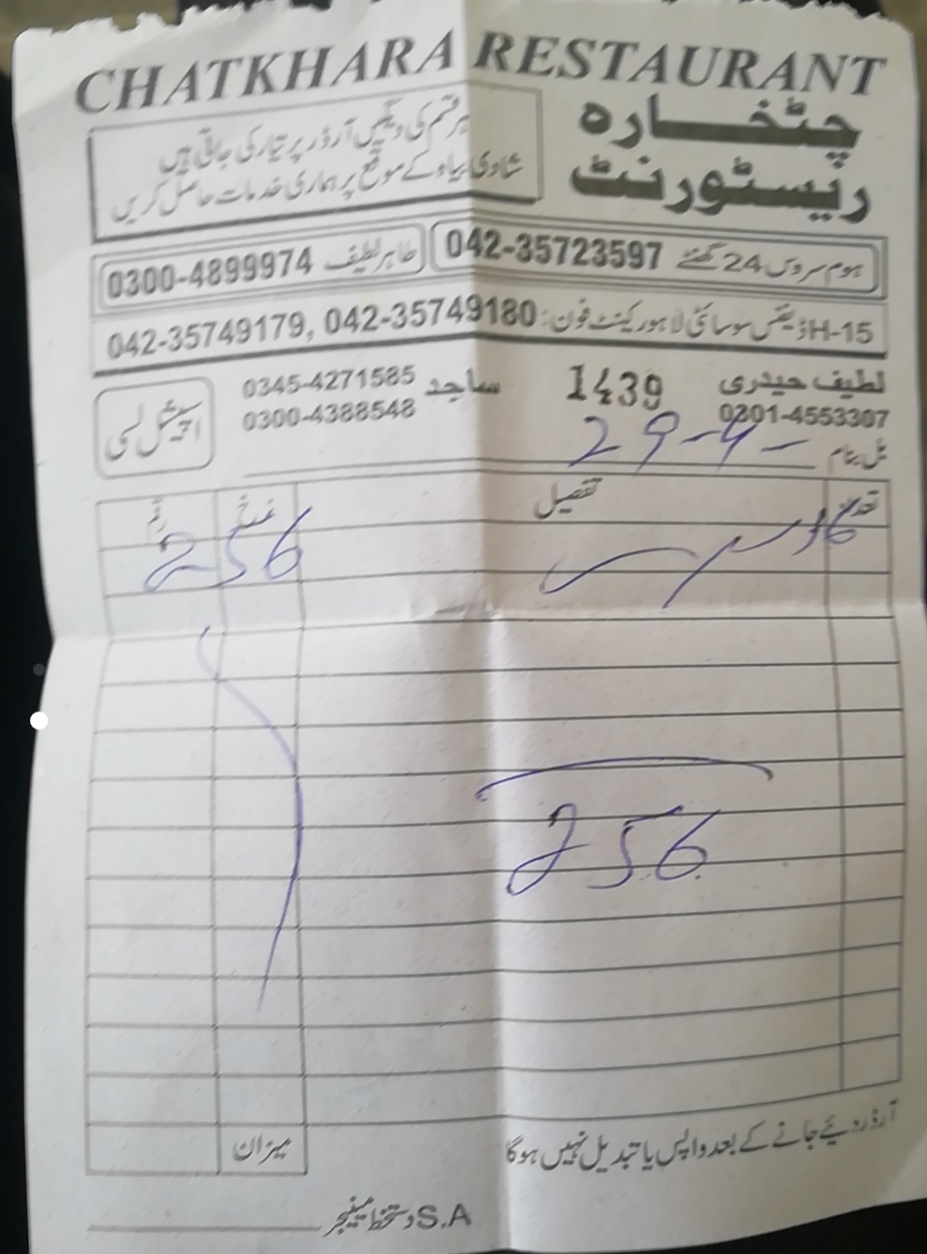 CHATKHARA RESTAURANT
چٹخارہ
ریسٹورنٹ
ہر قسم کی دیگیں آرڈر پر تیار کی جاتی ہیں
شادی بیاہ کے موقع پر ہماری خدمات حاصل کریں
ہوم سروس 24 گھنٹے 042-35723597
طاہر لطیف 0300-4899974
H-15 ڈیفنس سوسائٹی لاہور کینٹ فون: 042-35749180, 042-35749179
لطیف حیدری 1439 ساجد 0345-4271585
0301-4553307 0300-4388548
اسپیشل لسی
بل بنام 29-4-
تعداد تفصیل نرخ رقم
16 256
256
میزان
آرڈر دیئے جانے کے بعد واپس یا تبدیل نہیں ہوگا
S.A دستخط مینیجر